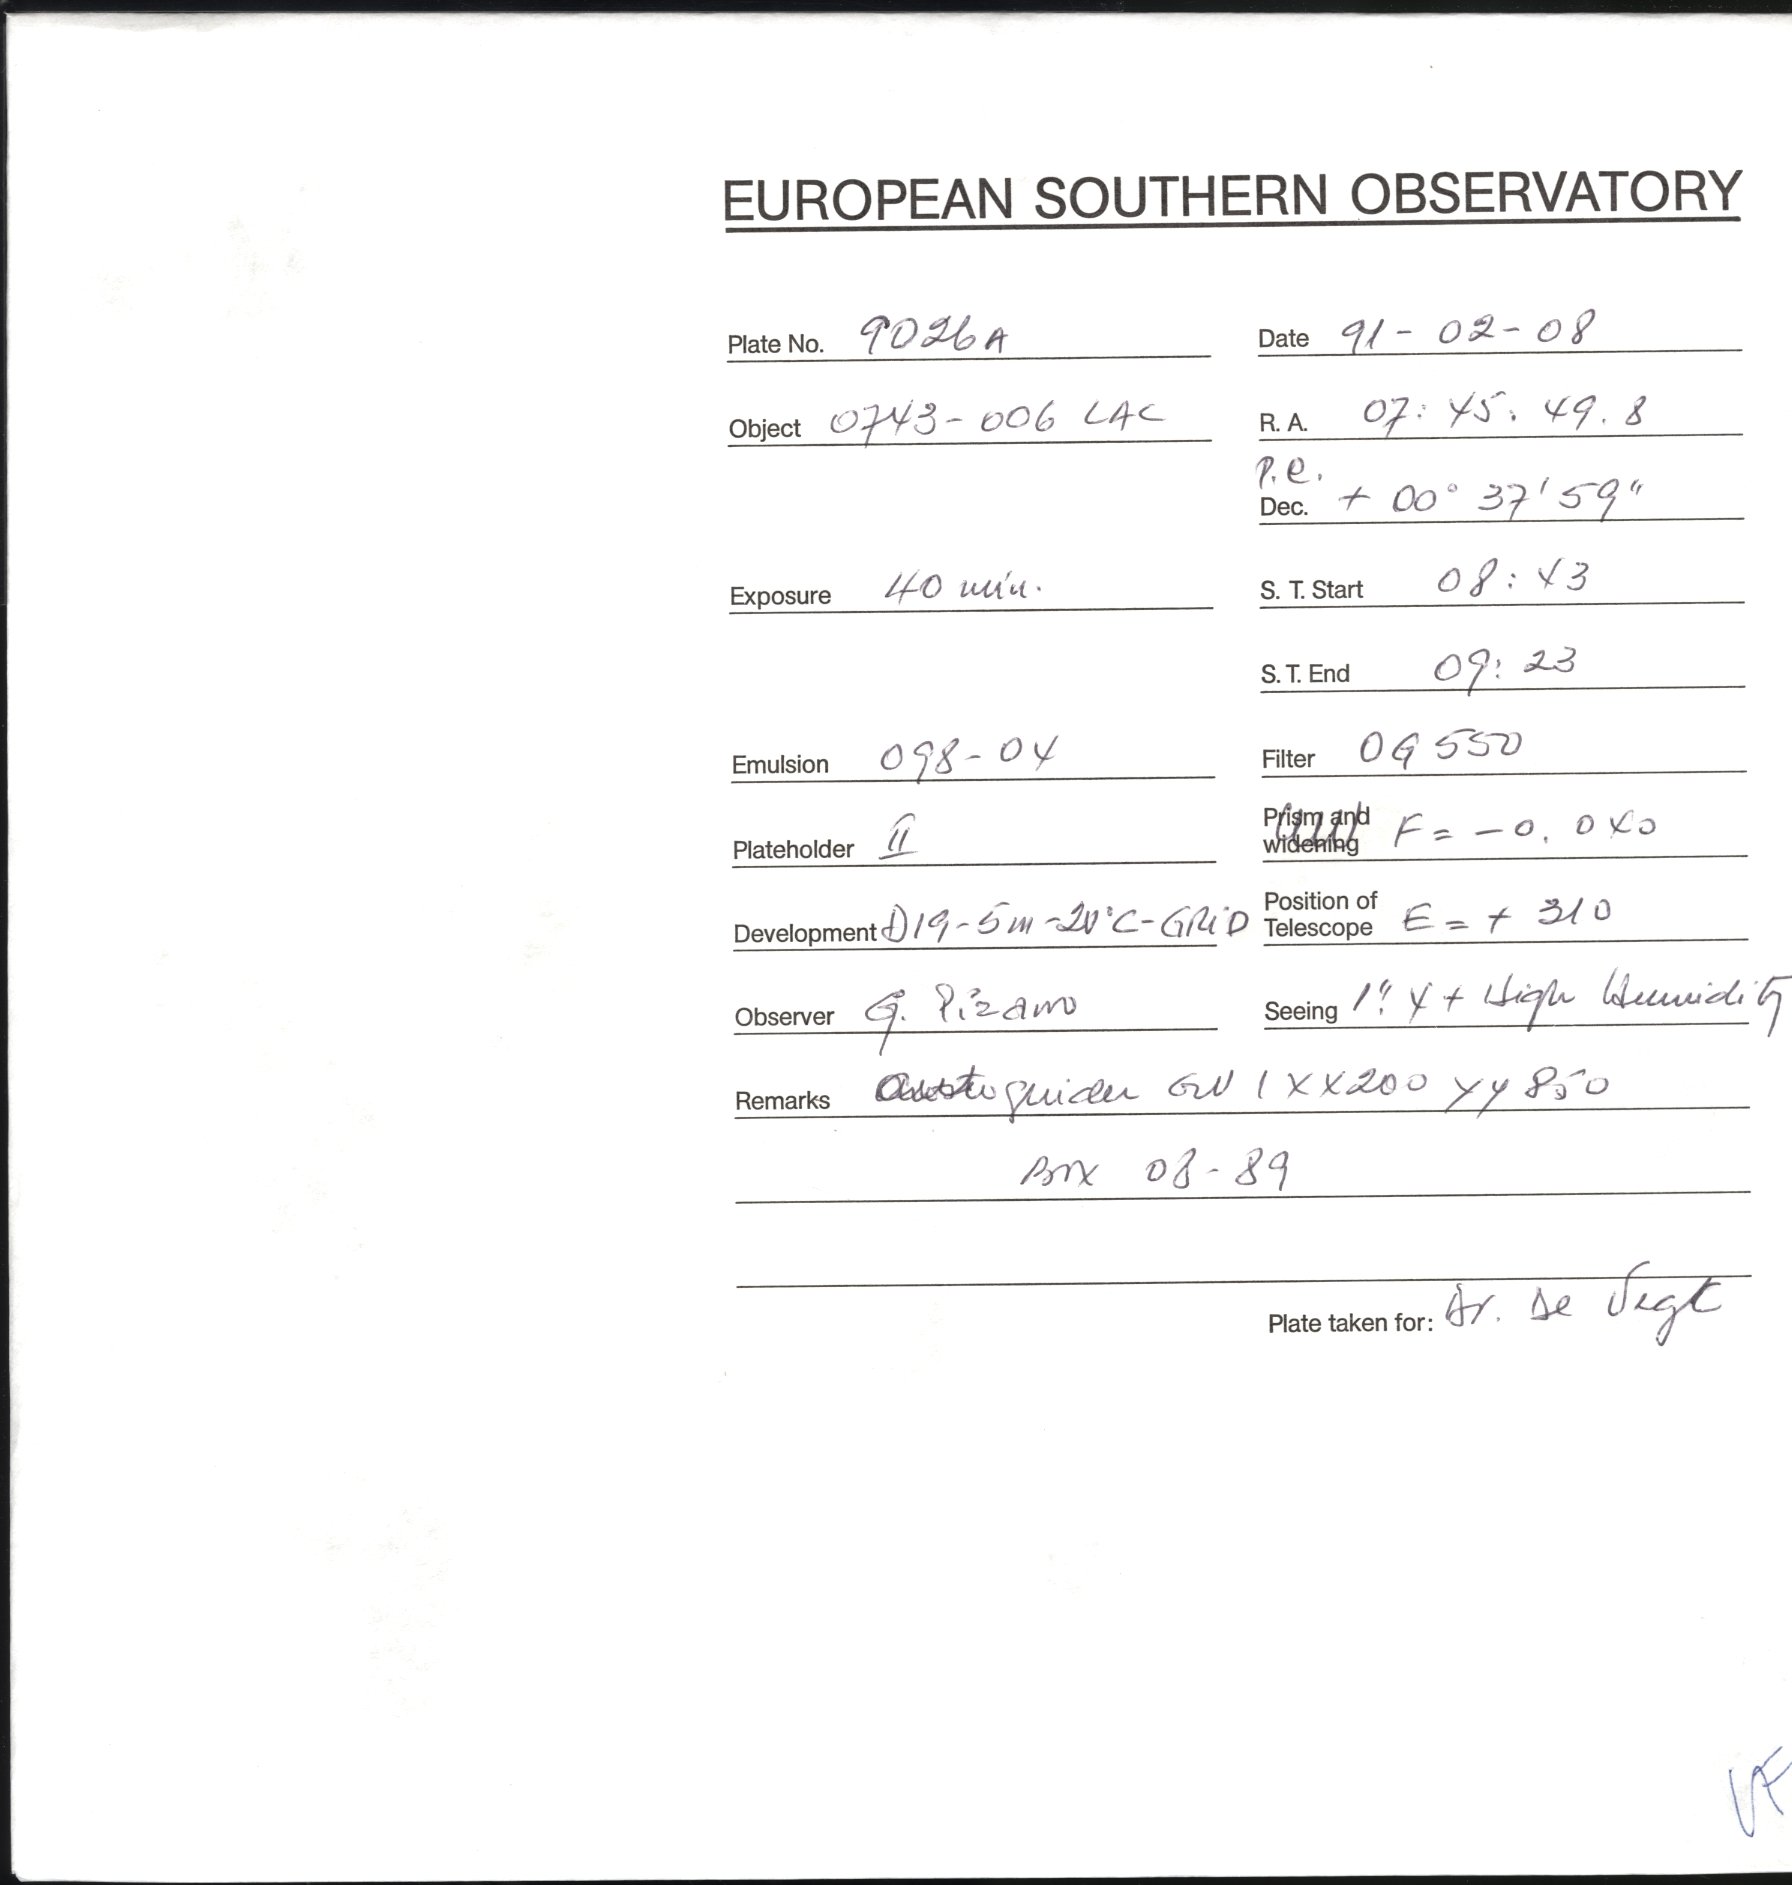 EUROPEAN SOUTHERN OBSERVATORY
Plate No. 9026A Date 91-02-08
Object 0743-006 LAC R. A. 07:45:49.8
P.e.
Dec. + 00° 37' 59"
Exposure 40 min. S. T. Start 08:43
S. T. End 09:23
Emulsion 098-04 Filter OG 550
Plateholder II Prism and widening F = -0.040
Development D19-5m-20°C-GRiD Position of Telescope E = + 310
Observer G. Pizarro Seeing 1".4 + High Humidity
Remarks guider GN 1 XX200 YY850
Box 08-89
Plate taken for: Dr. De Vegt